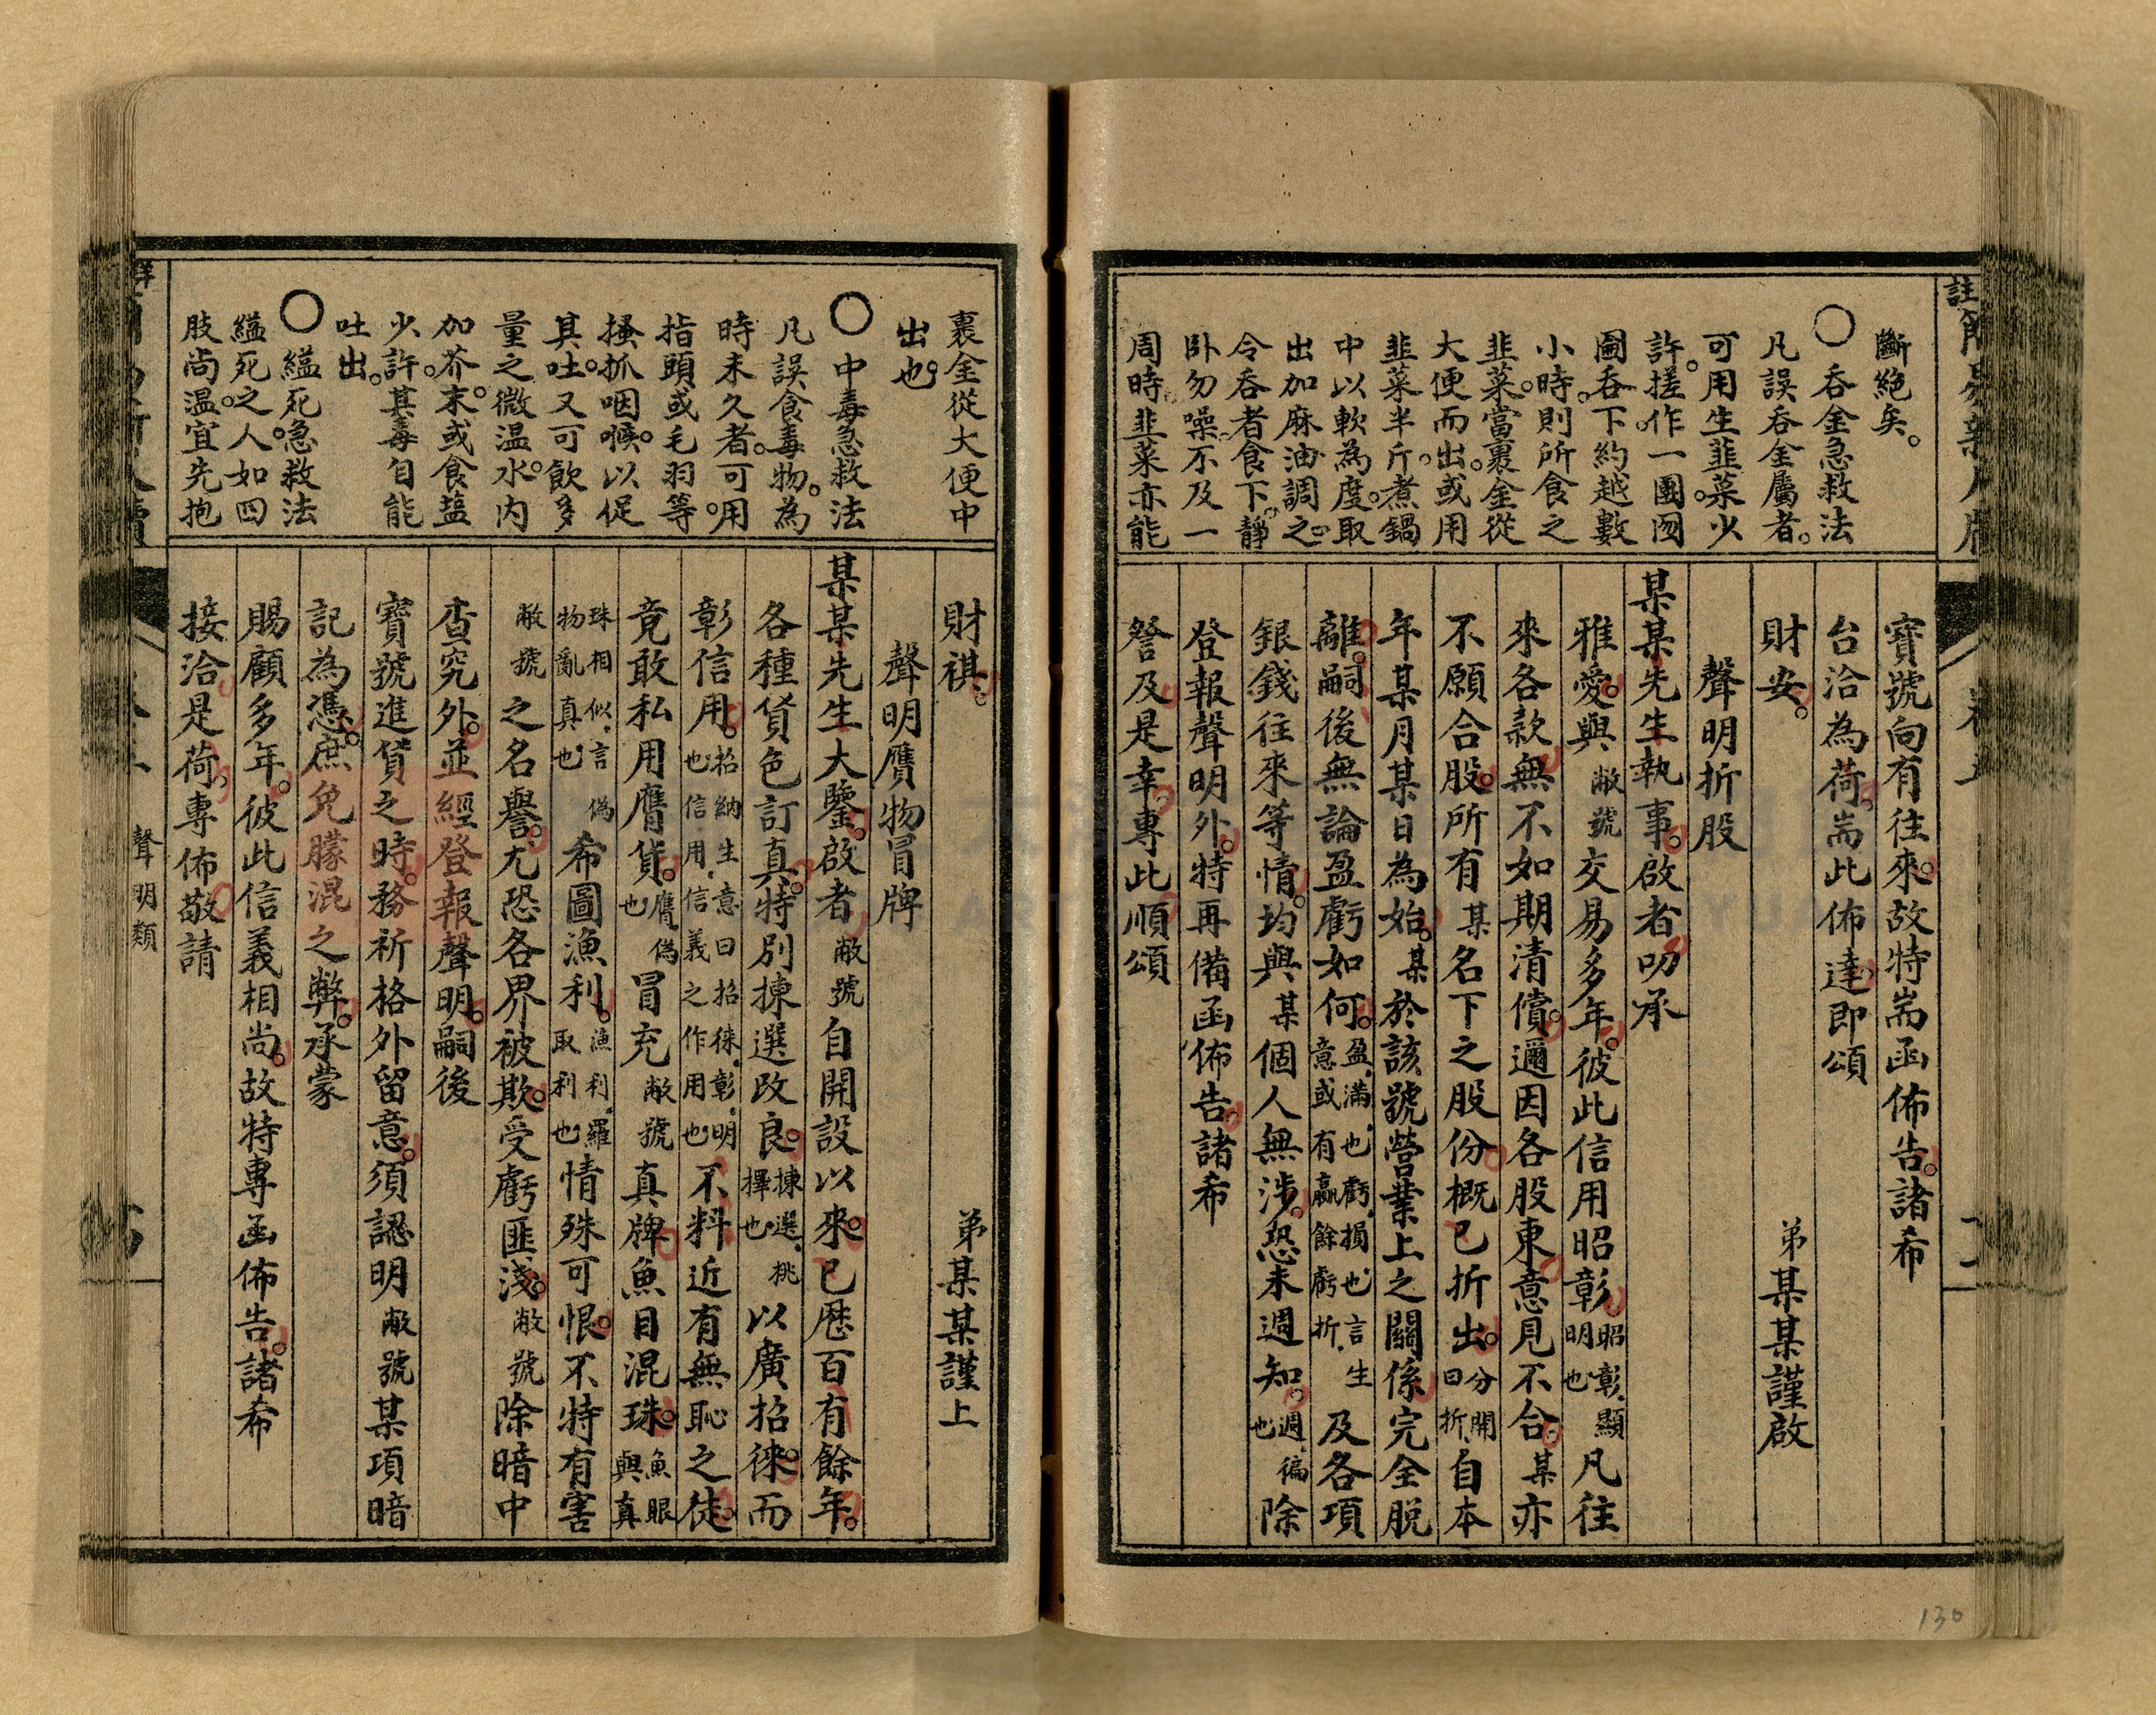 斷絕矣。
○吞金急救法
凡誤吞金屬者。
可用生韮菜。少
許。搓作一團。囫
圇吞下。約越數
小時。則所食之
韭菜。當裹金從
大便而出。或用
韭菜半斤。煮鍋
中以軟為度。取
出加麻油調之。
令吞者食下。靜
臥勿噪。不及一
周時韭菜亦能
寶號向有往來。故特耑函佈告。諸希
台洽為荷。耑此佈達。即頌
財安。 弟某某謹啟
聲明折股
某某先生執事。啟者叨承
雅愛。與敝號交易多年。彼此信用昭彰昭彰。顯明也凡往
來各款。無不如期清償。邇因各股東意見不合。某亦
不願合股。所有某名下之股份。概已折出。分開曰折。自本
年某月某日為始。某於該號營業上之關係完全脫
離。嗣後無論盈虧如何。盈。滿也。虧。損也。言生意或有贏餘虧折。及各項
銀錢往來等情。均與某個人無涉。恐未週知。週。徧也除
登報聲明外。特再備函佈告。諸希
詧及是幸。專此順頌
卷五
裹金從大便中
出也。
○中毒急救法
凡誤食毒物。為
時未久者。可用
指頭或毛羽等。
搔抓咽喉。以促
其吐。又可飲多
量之微温水。內
加芥末。或食塩
少許。其毒自能
吐出。
○縊死急救法
縊死之人。如四
肢尚温。宜先抱
財祺。 弟某某謹上
聲明贋物冒牌
某某先生大鑒。啟者敝號自開設以來。已歷百有餘年。
各種貨色訂真。特別揀選改良。揀選。桃擇也。以廣招徠。而
彰信用。招納生意曰招徠。彰。明也信用。信義之作用也不料近有無恥之徒。
竟敢私用贋貨。贋。偽也冒充敝號真牌。魚目混珠。魚眼與真
珠相似。言偽物亂真也希圖漁利。漁利。羅取利也情殊可恨。不特有害
敝號之名譽。尤恐各界被欺。受虧匪淺。敝號除暗中
查究外。並經登報聲明。嗣後
寶號進貨之時。務祈格外留意。須認明敝號某項暗
記為憑。庶免朦混之弊。承蒙
賜顧多年。彼此信義相尚。故特專函佈告。諸希
接洽是荷。專佈敬請
聲明類
130